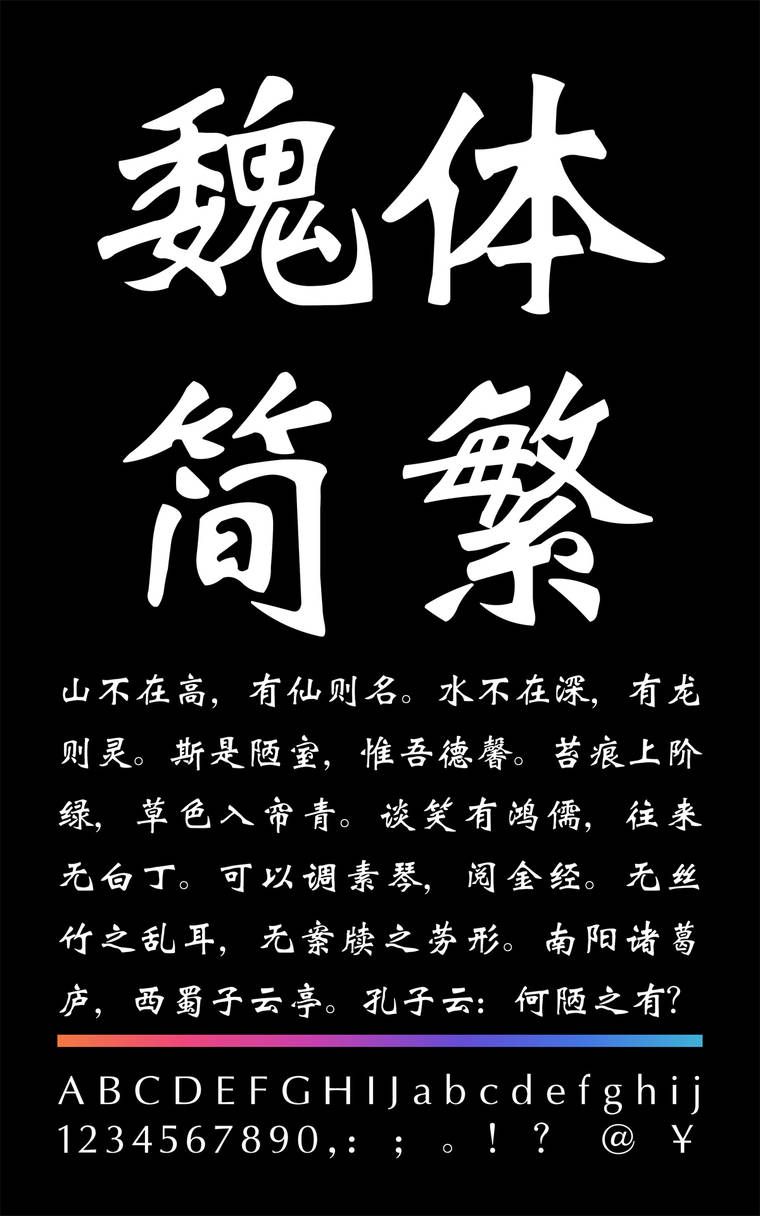 魏体
简繁
山不在高，有仙则名。水不在深，有龙
则灵。斯是陋室，惟吾德馨。苔痕上阶
绿，草色入帘青。谈笑有鸿儒，往来
无白丁。可以调素琴，阅金经。无丝
竹之乱耳，无案牍之劳形。南阳诸葛
庐，西蜀子云亭。孔子云：何陋之有？
ABCDEFGHIJabcdefghij
1234567890,：；。！？@￥